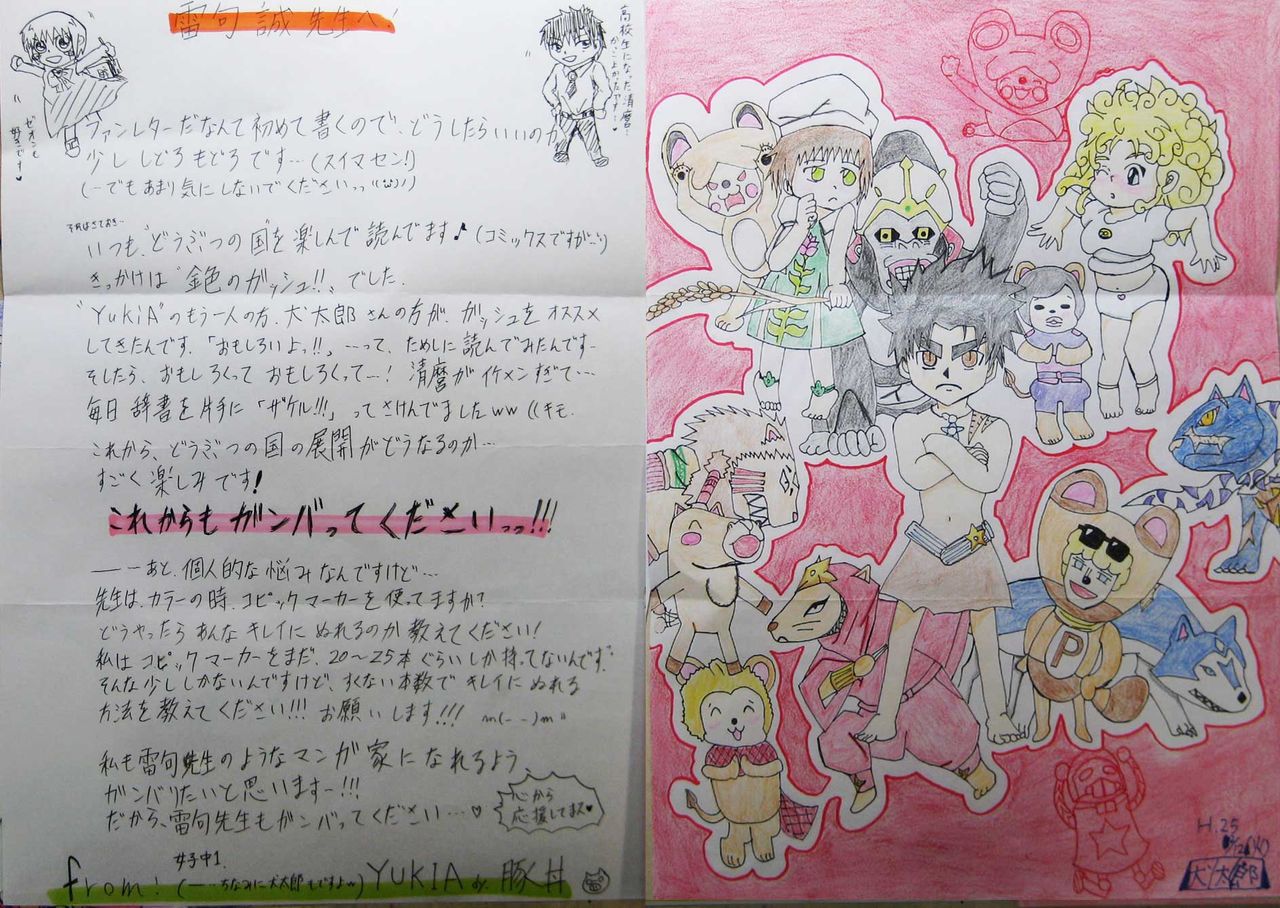 雷句 誠 先生へ
ゼオンも
好きです♥
高校生になった清麿君!
かっこよかったです!♥
ファンレターだなんて初めて書くので、どうしたらいいのか
少ししどろもどろです…(スイマセン!)
(ーでもあまり気にしないでくださいっっ
それはさておき…
いつも、"どうぶつの国"を楽しんで読んでます♪(コミックスですが…)
きっかけは"金色のガッシュ!!"でした。
"YukiA"のもう一人の方、犬太郎さんの方が、ガッシュをオススメ
してきたんです。「おもしろいよっ!!」…って、ためしに読んでみたんです…
そしたら、おもしろくっておもしろくって…!清麿がイケメンすぎて…
毎日辞書を片手に「ザケル!!!」ってさけんでましたww((キモ。
これから、どうぶつの国の展開がどうなるのか…
すごく楽しみです!
これからもガンバってくださいっっ!!!
――あと、個人的な悩みなんですけど…
先生は、カラーの時、コピックマーカーを使ってますか?
どうやったらあんなキレイにぬれるのか教えてください!
私はコピックマーカーをまだ、20〜25本ぐらいしか持ってないんです。
そんな少ししかないんですけど、すくない本数でキレイにぬれる
方法を教えてください!!!お願いします!!! m(--)m"
私も雷句先生のようなマンガ家になれるよう、
ガンバりたいと思いますー!!!
だから、雷句先生もガンバってください…♡
心から
応援してます♥
女子中1.
from! (――ちなみに犬太郎もですよw) YUKIA by. 豚丼
P
H.25
犬太郎